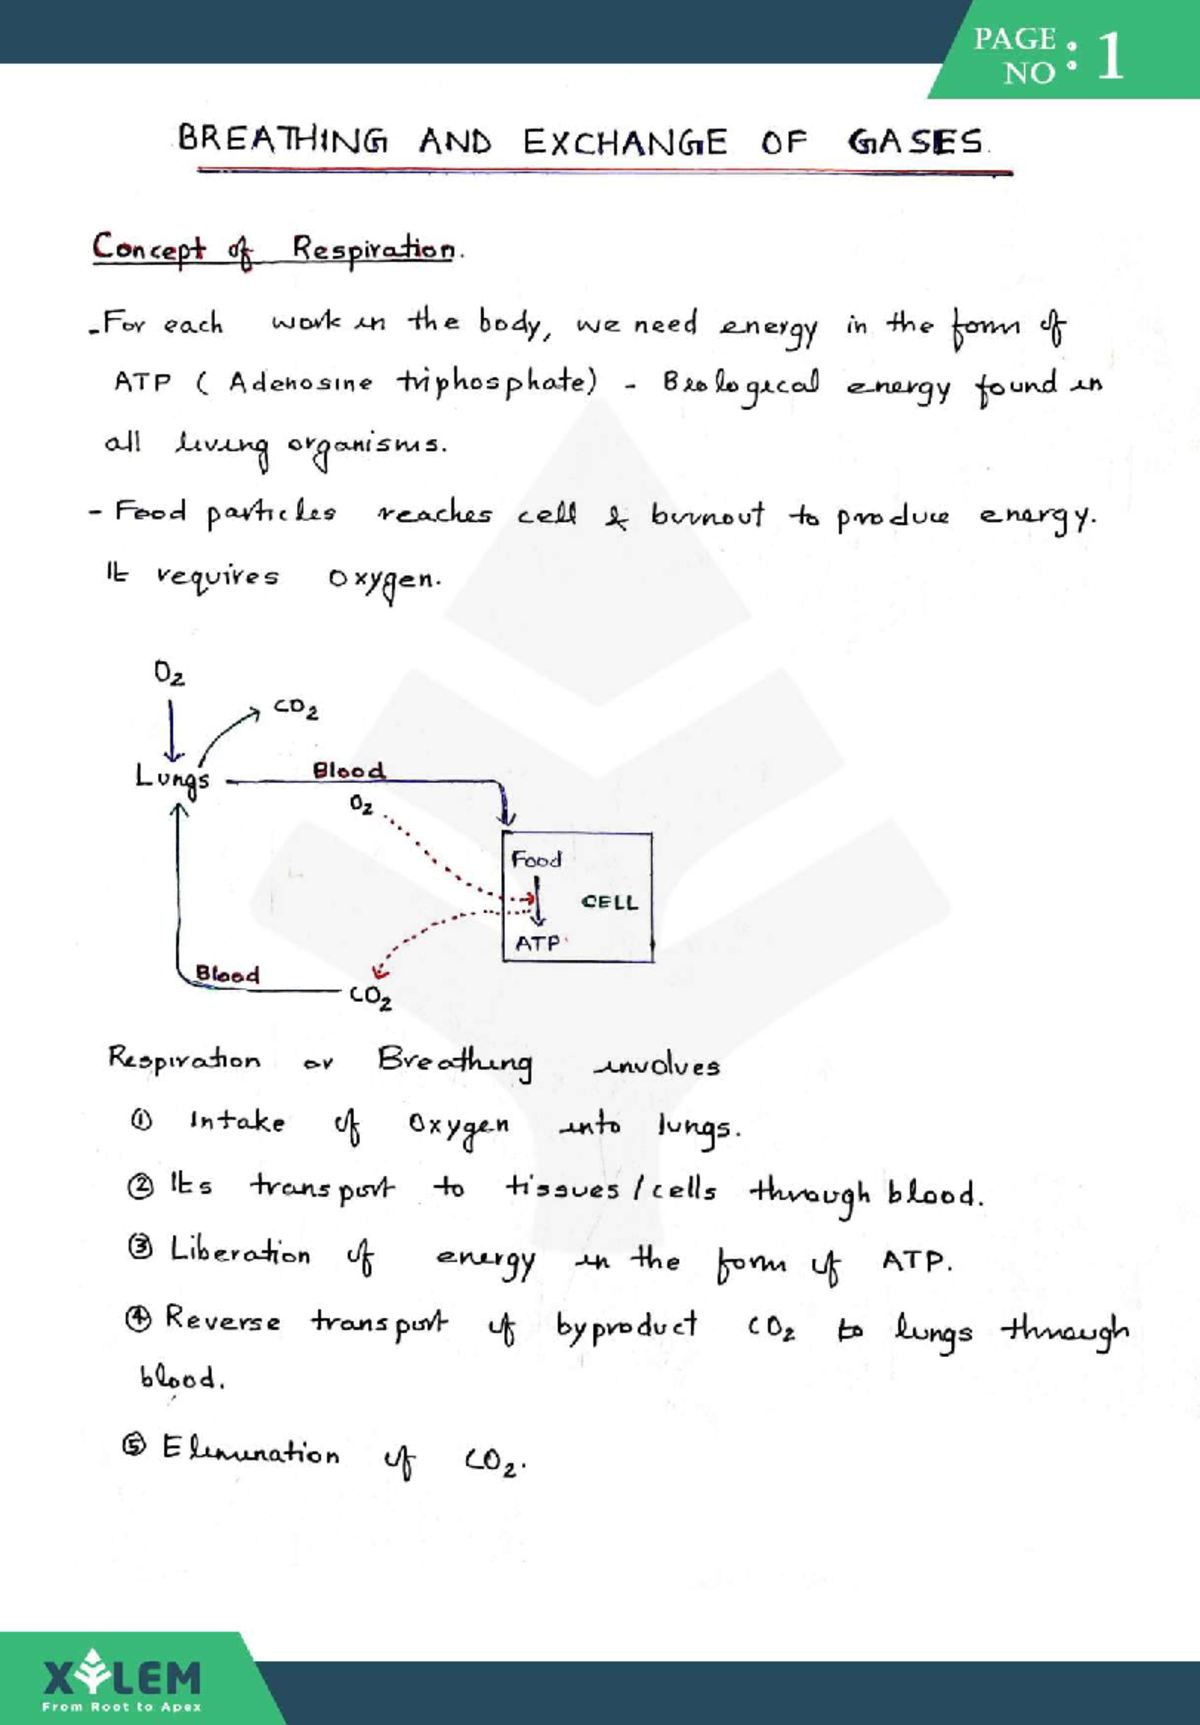 PAGE NO : 1
BREATHING AND EXCHANGE OF GASES.
Concept of Respiration.
- For each work in the body, we need energy in the form of
ATP ( Adenosine triphosphate) - Biological energy found in
all living organisms.
- Food particles reaches cell & burnout to produce energy.
It requires oxygen.
O2
CO2
Lungs
Blood
O2
Food
CELL
ATP
Blood
CO2
Respiration or Breathing involves
① Intake of Oxygen into lungs.
② Its transport to tissues/cells through blood.
③ Liberation of energy in the form of ATP.
④ Reverse transport of byproduct CO2 to lungs through
blood.
⑤ Elimination of CO2.
XYLEM
From Root to Apex